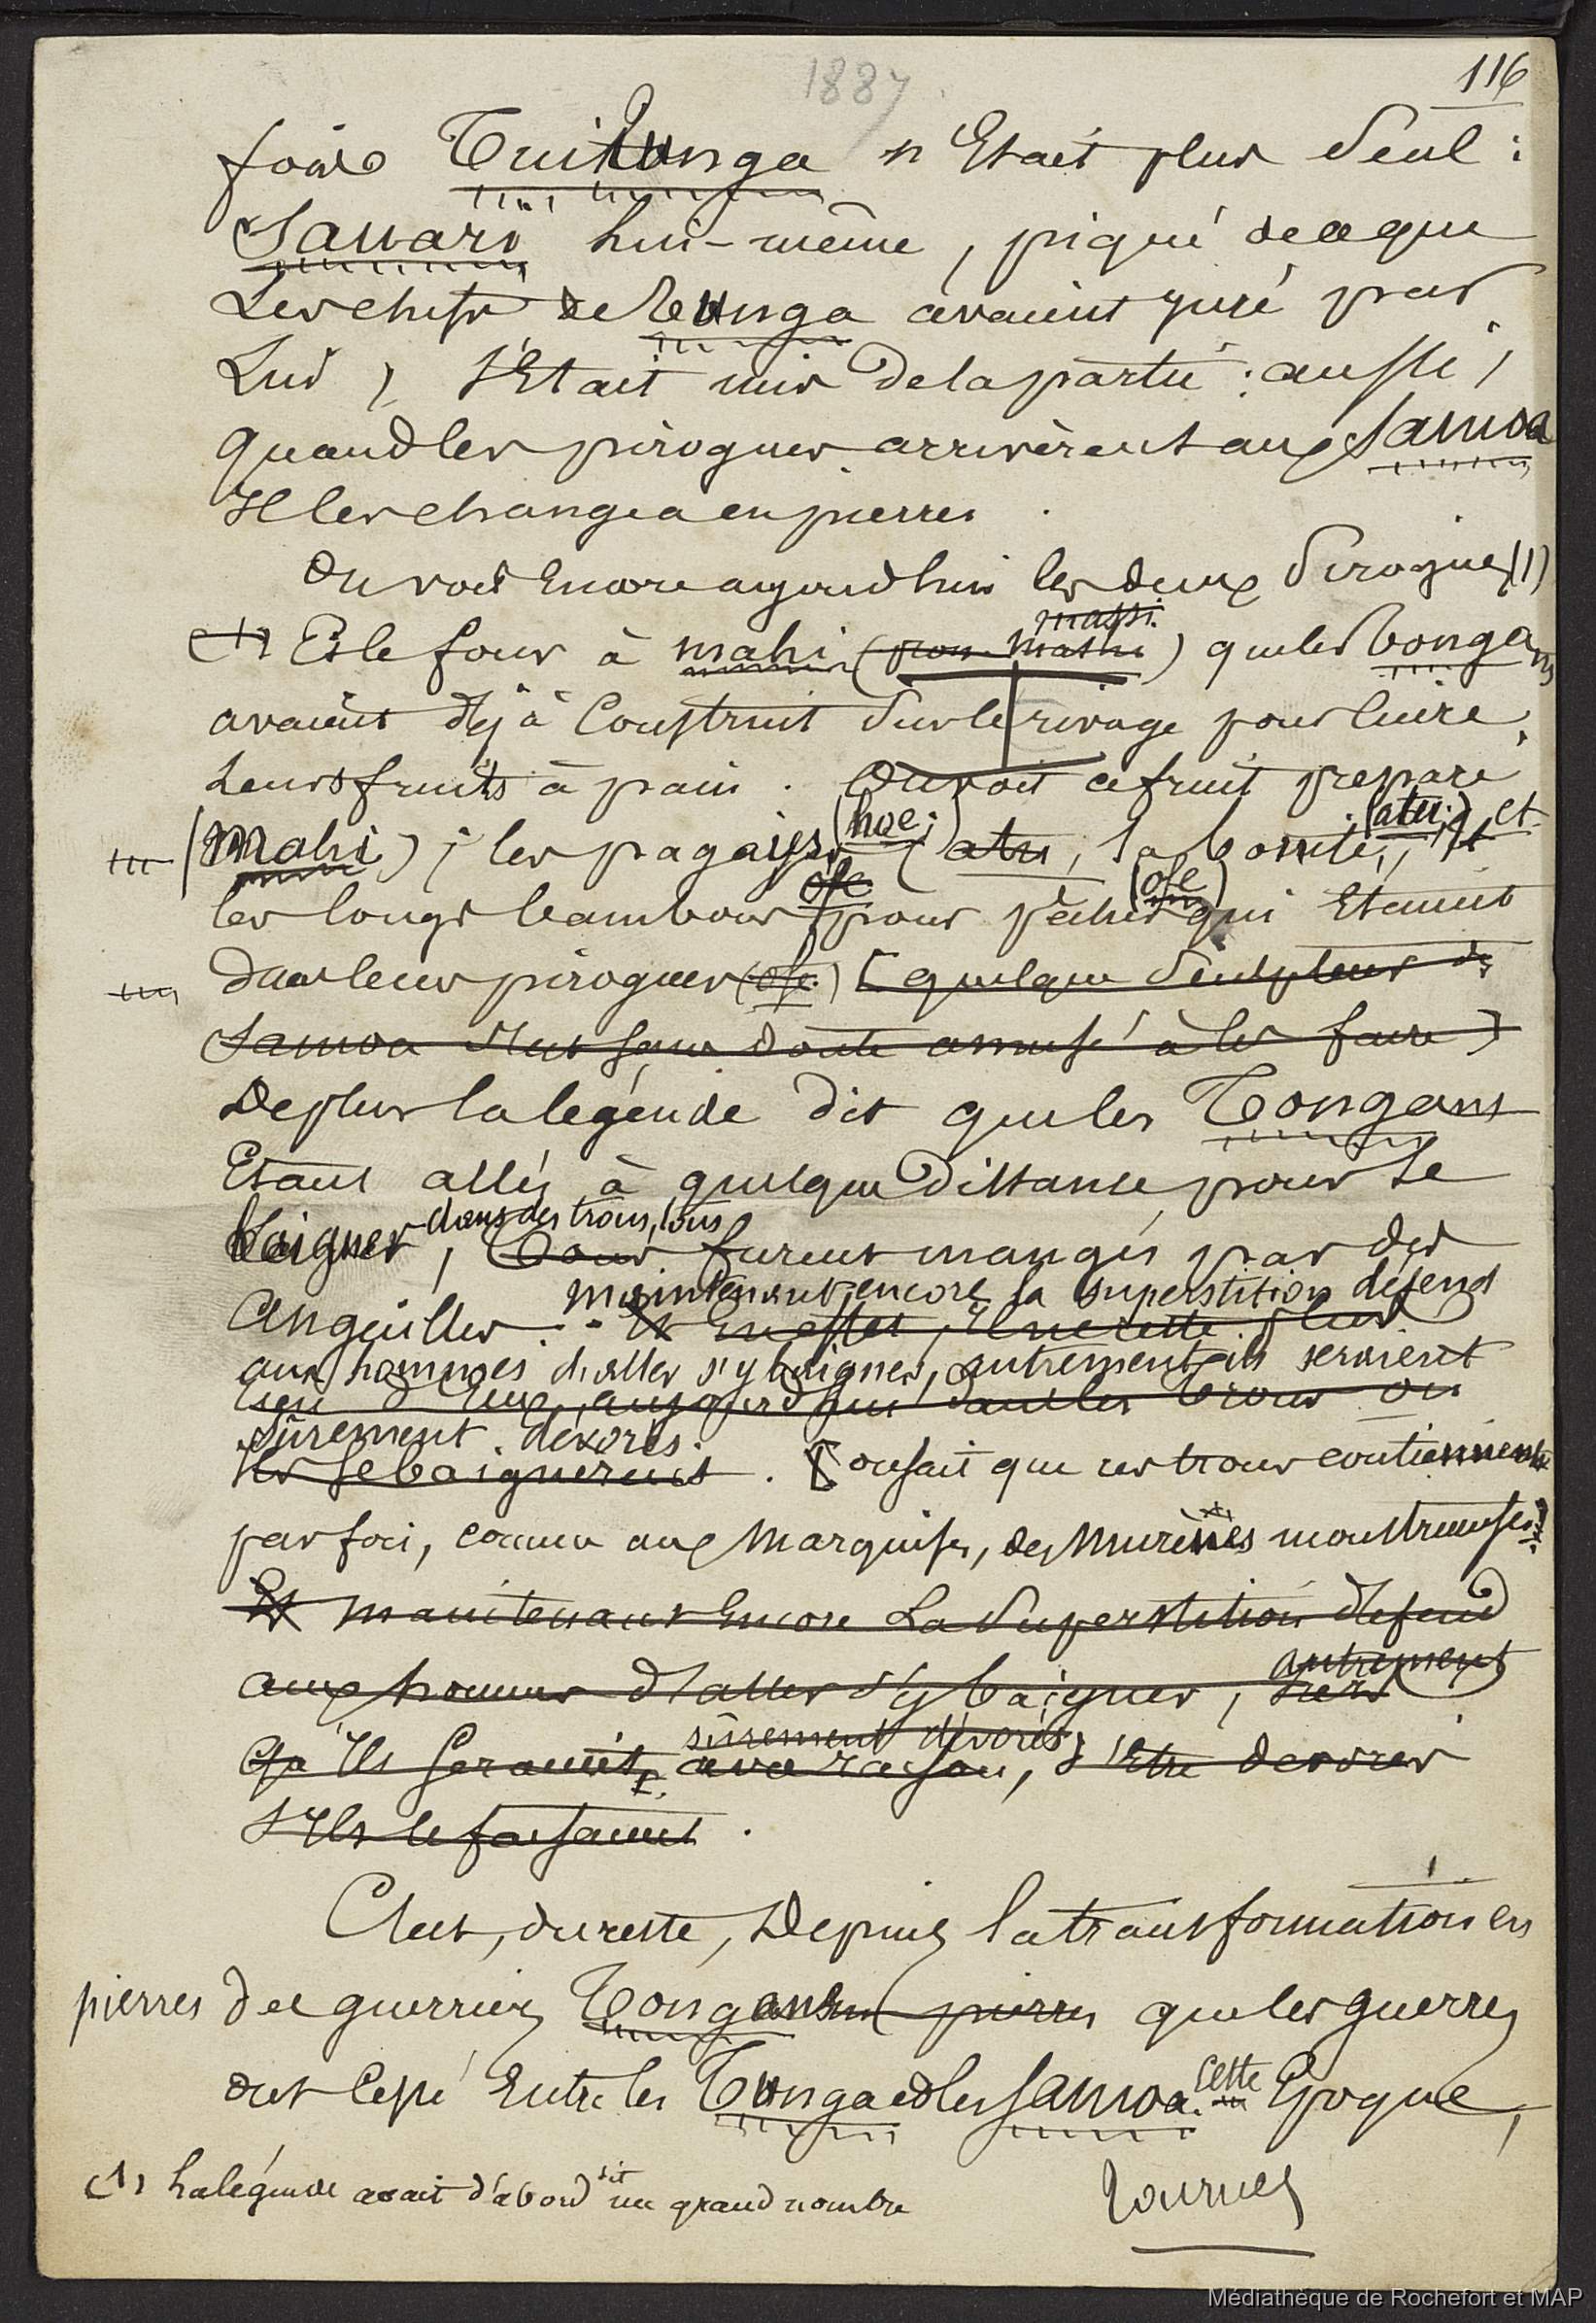 1887
116
fois Tuitonga n'Etait plus Seul :
Savari lui-même, piqué de ce que
Les chefs de Tonga avaient juré par
Lui, s'Etait mis de la partie : aussi,
quand les pirogues arrivèrent aux Samoa
Il les changea en pierres.
On voit Encore aujourd'hui les deux Pirogues (1)
massi.
(1) Et le four à mahi (pron. Mashi) que les Tongans
avaient déjà Construit Sur le rivage pour Cuire
Leurs fruits à pain. On voit ce fruit préparé
(hoe; (atu;) et
(Mahi); les pagayes, (atu, la bonite,, et
ofe (ofe)
les longs bambous pour pêcher qui Etaient
Dans leurs pirogues (ofe.) [quelque Sculpteur de
Samoa s'Est sans doute amusé à les faire]
De plus la légende dit que les Tongans
Etant allés à quelque Distance pour Se
dans des trous, tous
baigner, Tous furent mangés par des
maintenant encore la superstition défend
Anguilles. Et En effet, Il ne reste plus
aux hommes d'aller s'y baigner, autrement ils seraient
rien d'Eux aujourd'hui dans les trous où
sûrement dévorés.
Ils se baignèrent. [on sait que ces trous contiennent
parfois, comme aux Marquises, des Murènes monstrueuses]
Et maintenant Encore La Superstition défend
autrement
aux hommes d'aller s'y baigner,
sûrement dévorés
Ils Seraient, avec raison, d'Etre dévorés
s'Ils le faisaient.
C'Est, du reste, Depuis la transformation en
pierres de guerriers Tongans pierres que les guerres
cette
ont Cessé Entre les Tonga et les Samoa. Epoque,
dit
(1) La légende avait d'abord un grand nombre
Tournez
Médiathèque de Rochefort et MAP